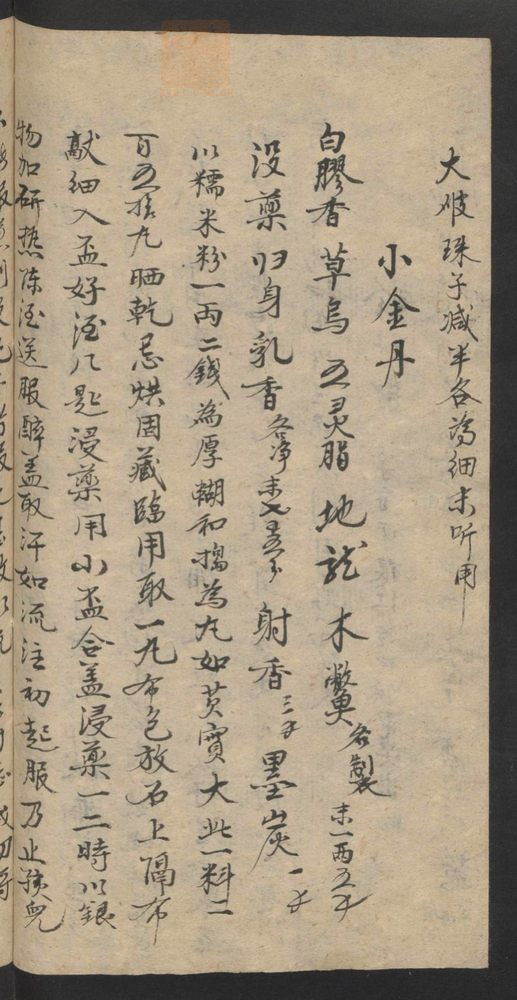 大㕹珠子减半各為细末听用
小金丹
白膠香草烏五灵脂地龙木鱉各製末一两五千
没藥归身乳香各净末七千五分射香三千墨炭一千
以糯米粉一两二錢為厚糊和搗為丸如芡實大此一料二
百五拾丸晒乾忌烘固藏臨用取一丸布包放石上隔布
敲细入盃好酒几匙浸藥用小盃合盖浸藥一二時以銀
物加研热陈酒送服醉盖取汗如流注初起服乃止孩児